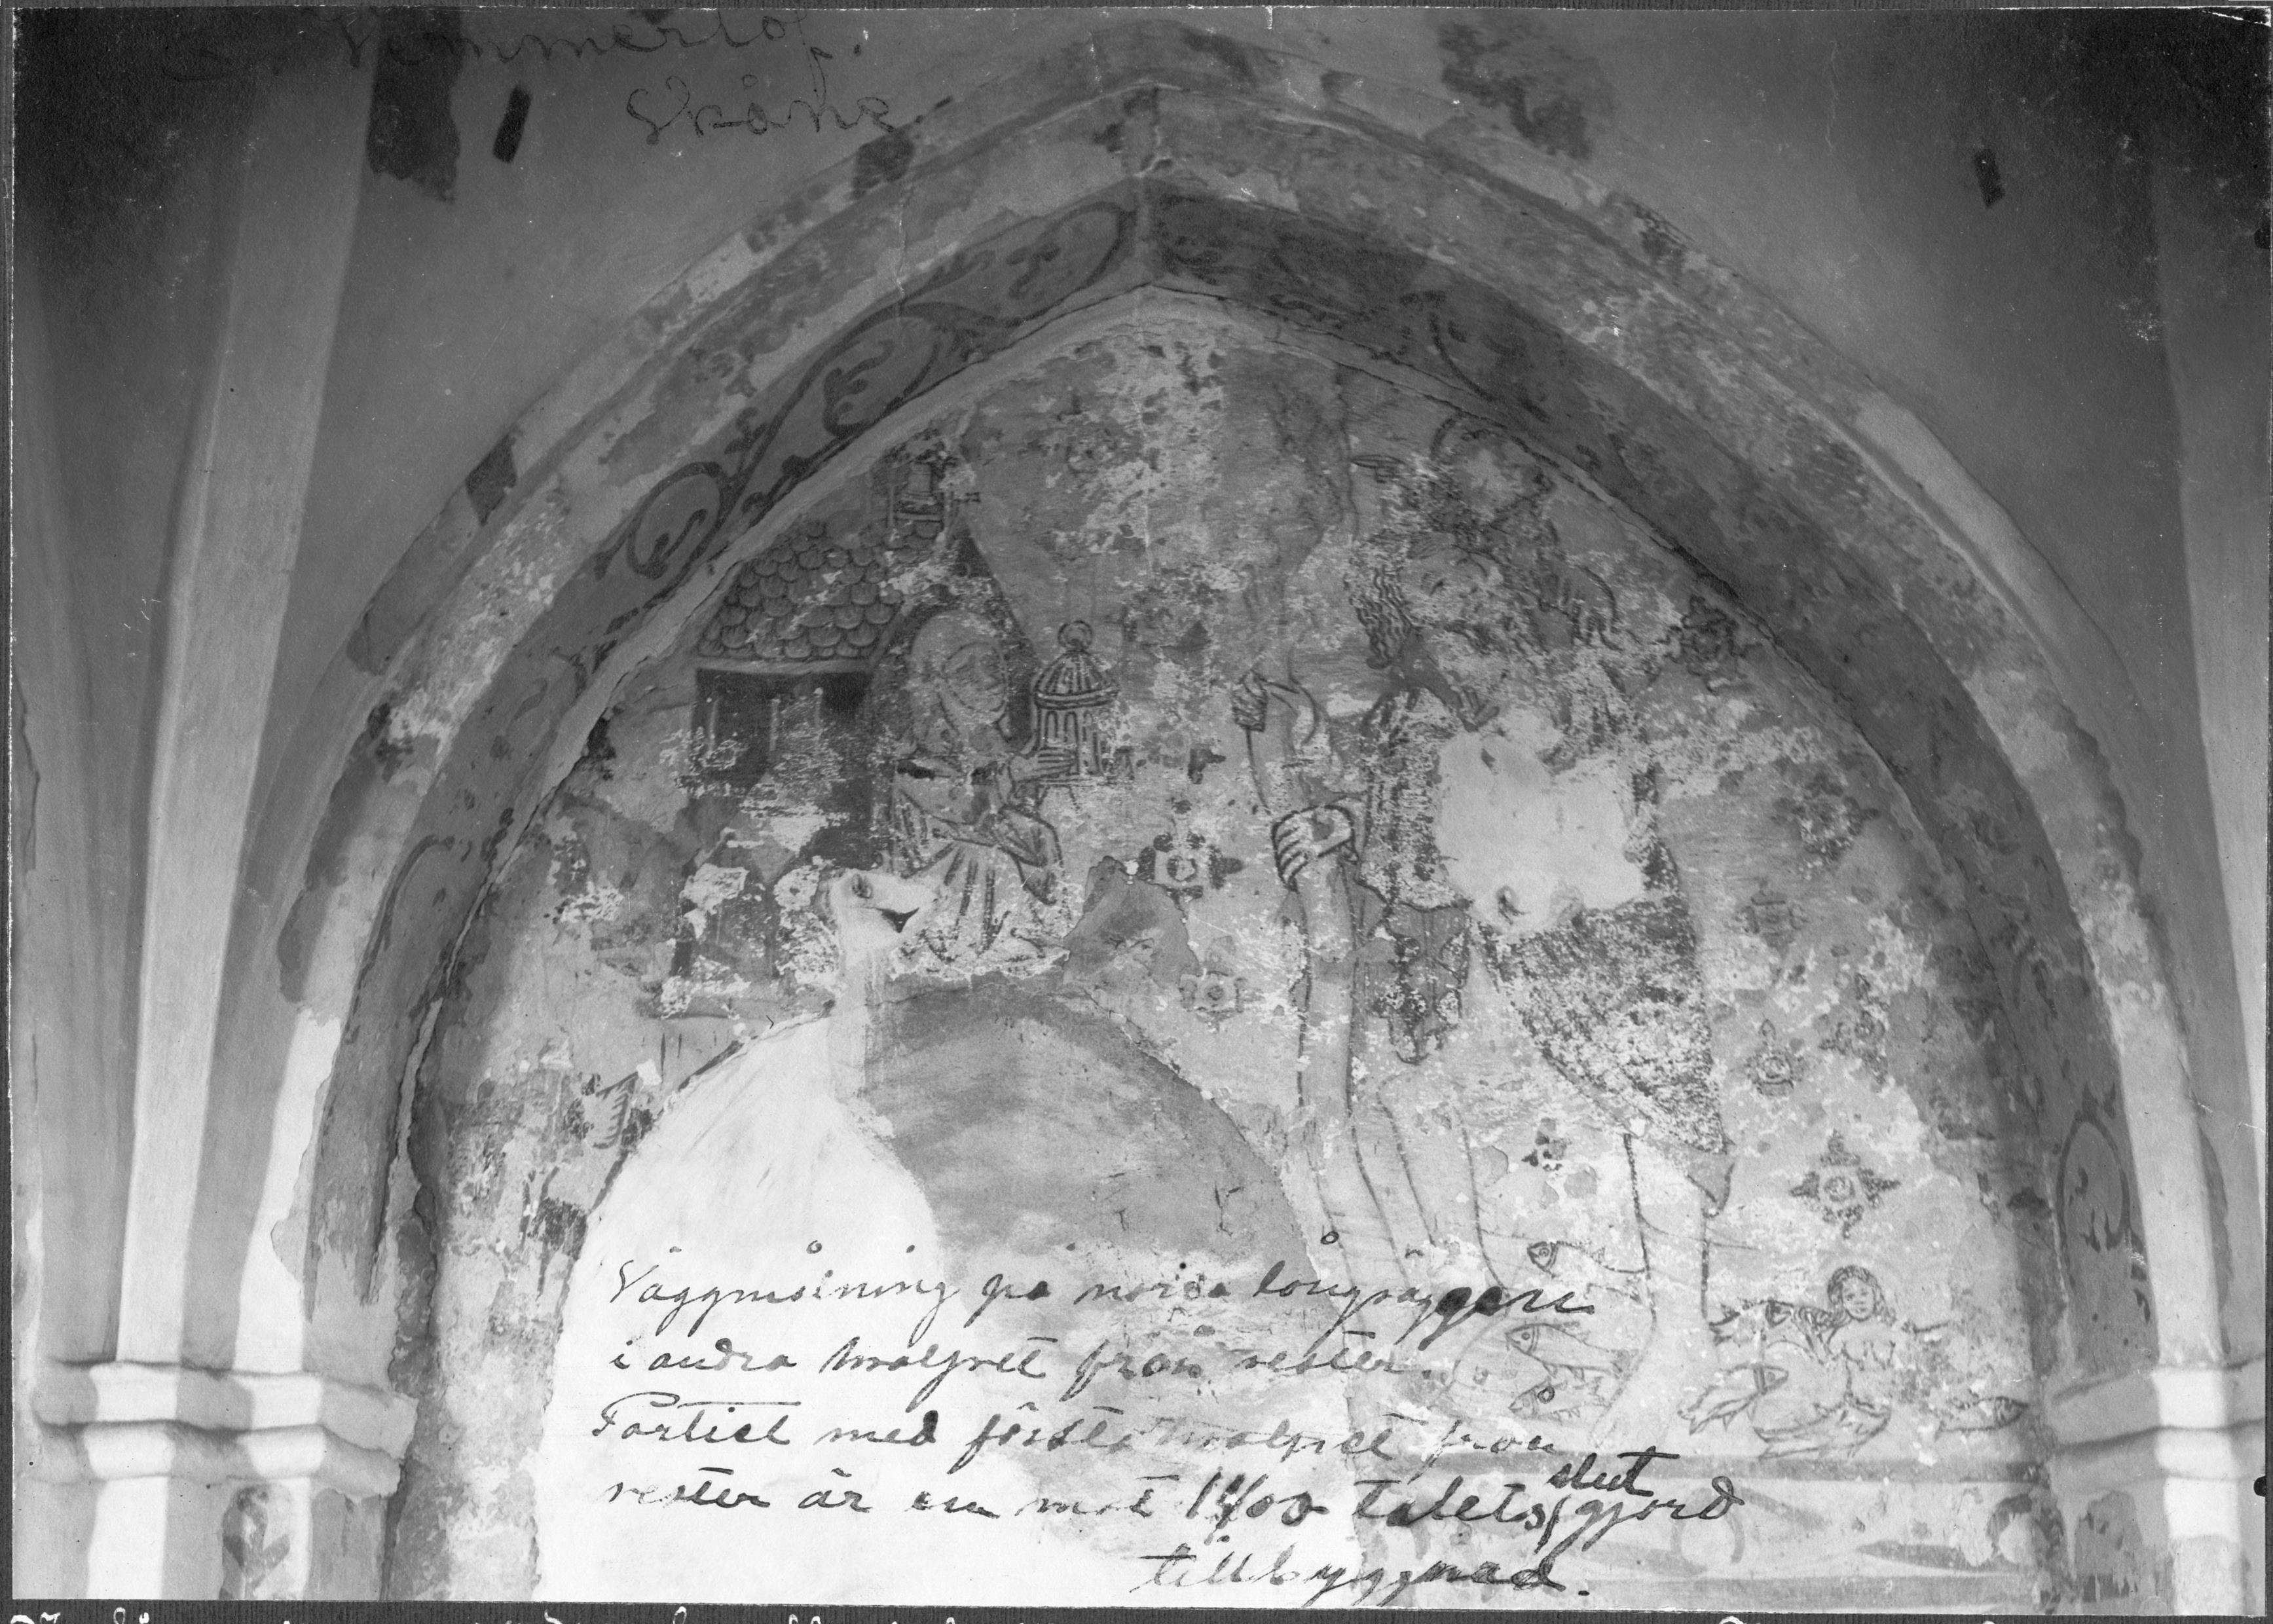 Vemmerlöf.
Skåne.
Väggmålning på norra långväggen
i andra hvalfvet från vester.
Partiet med första hvalfvet från
vester är en mot 1400 talets slut gjord
tillbyggnad.